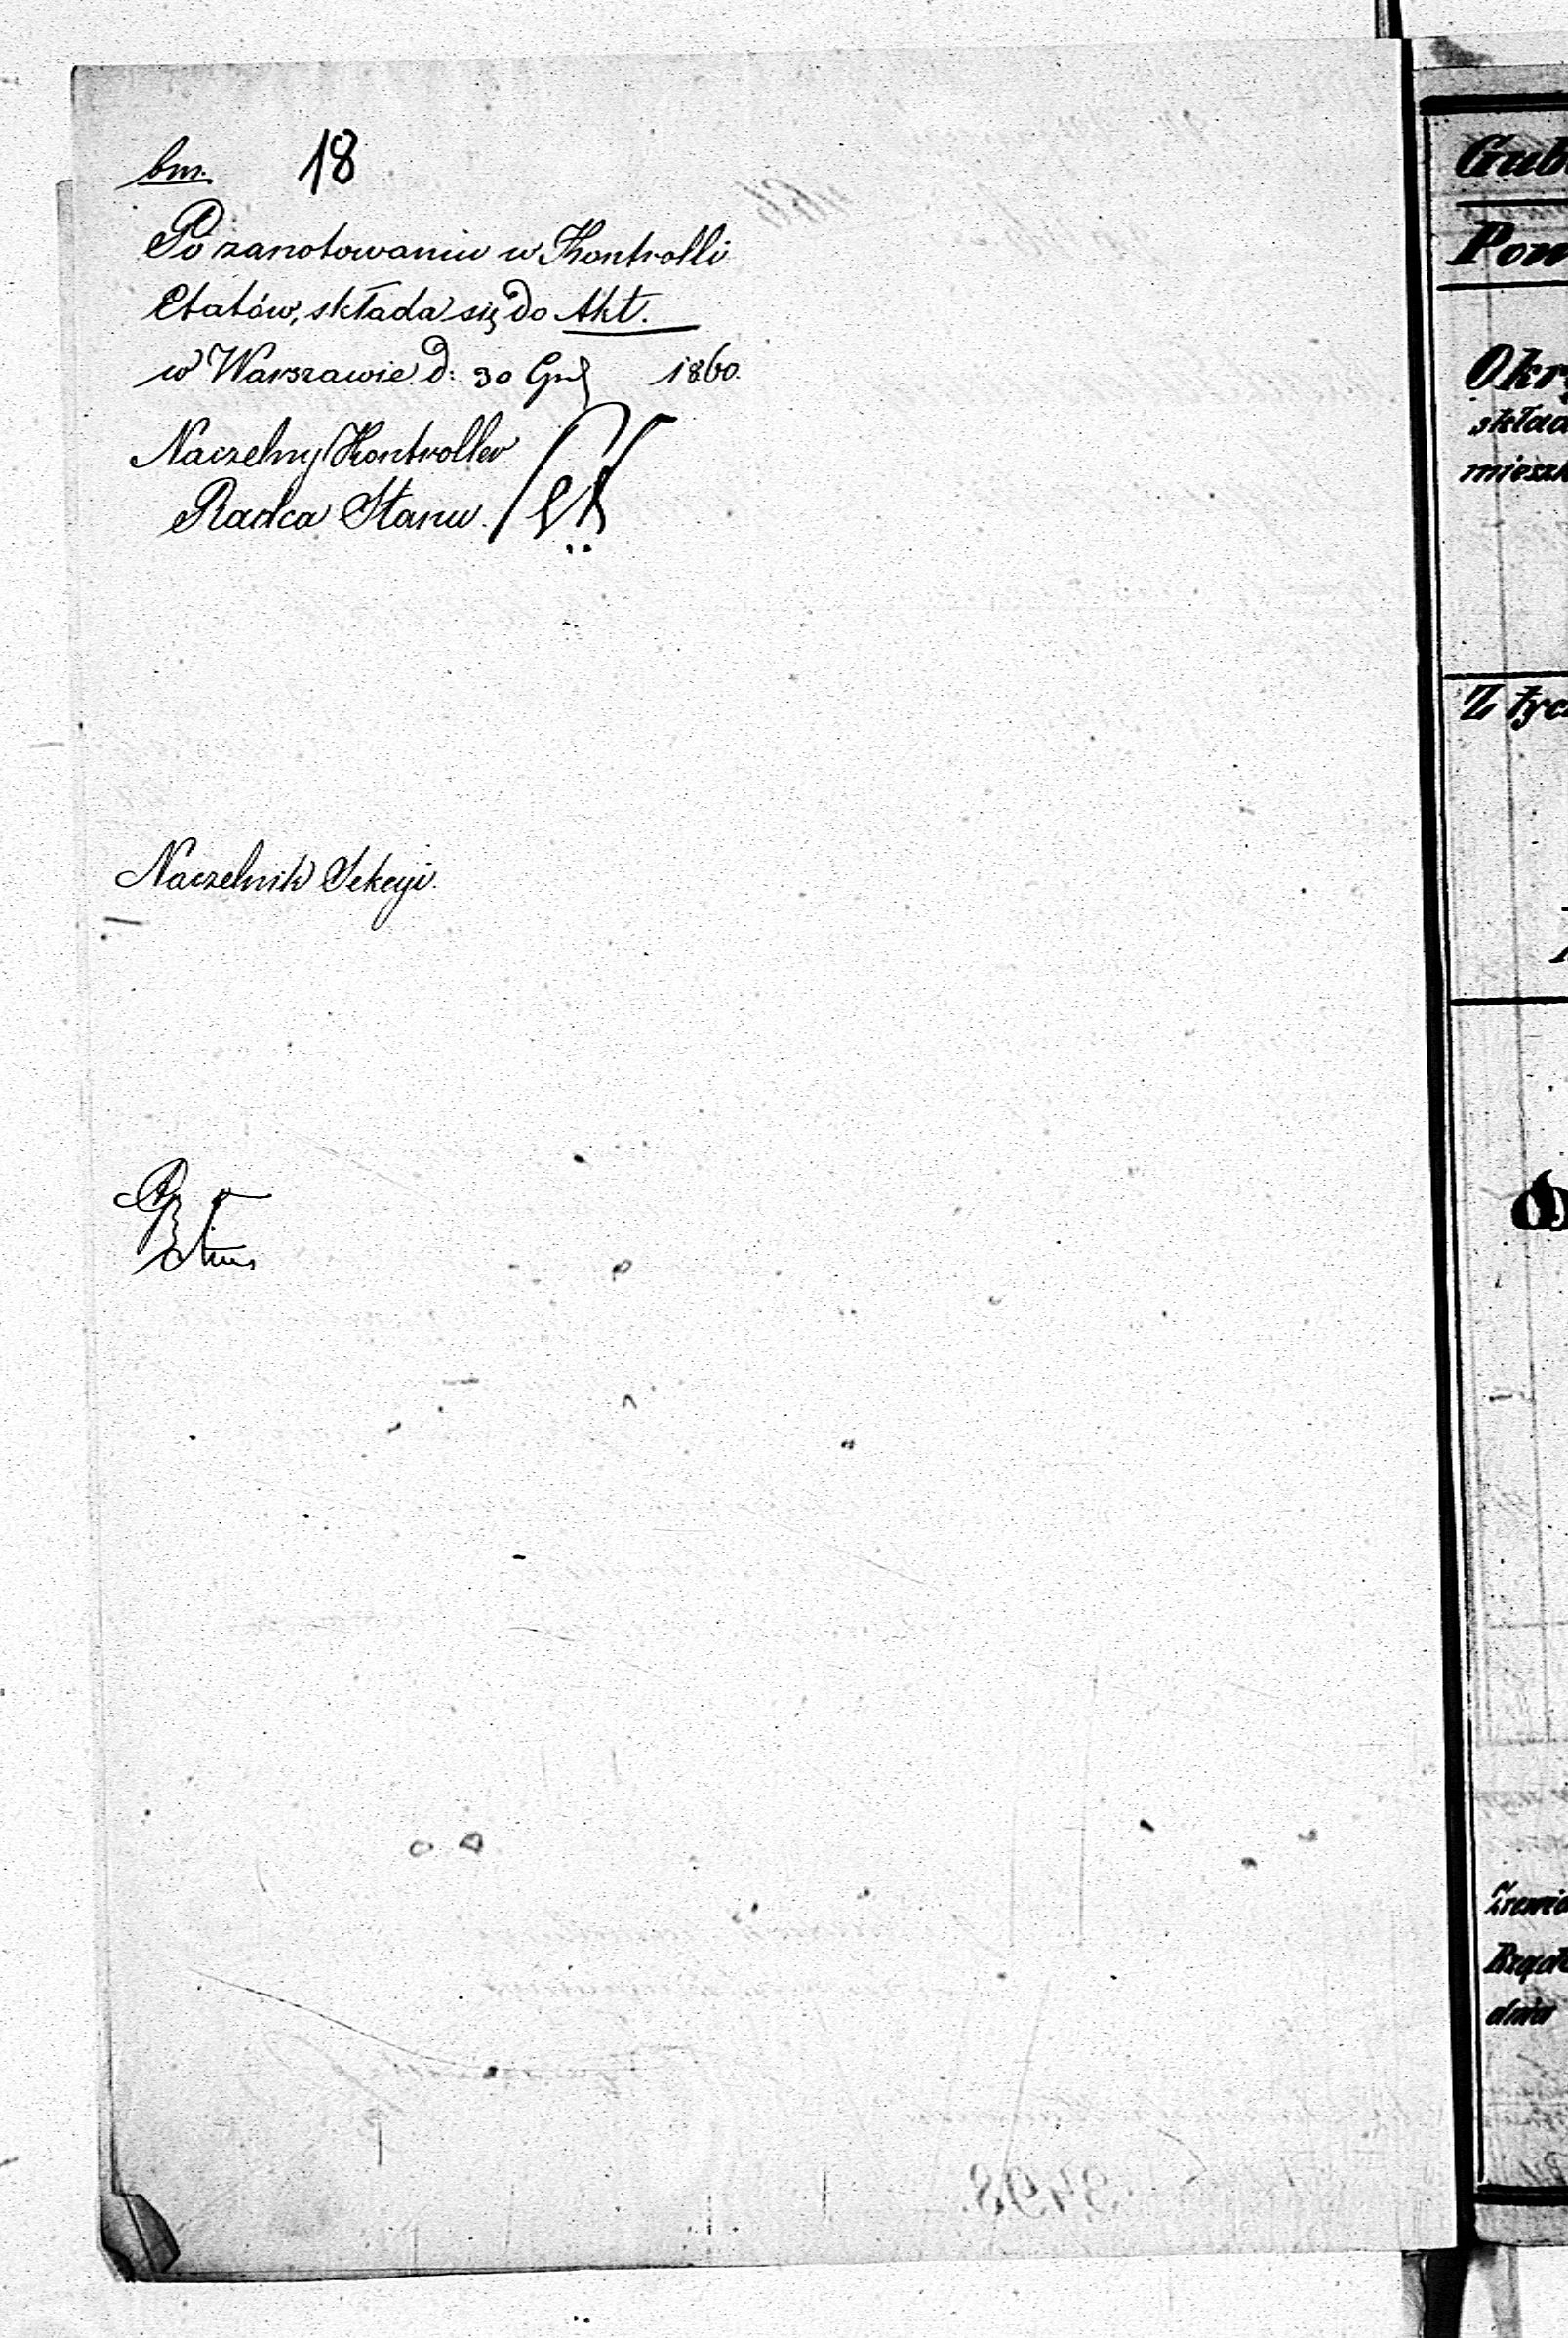 bm. 18
Po zanotowaniu w Kontrolli
Etatów, składa się do Akt.
w Warszawie d: 30 1860.
Naczelny Kontroller
Radca Stanu.
Naczelnik Sekcyi.
Gub
Pow
Okrę
skład
mieszk
Z tyc
Rząd
dnia
3498.